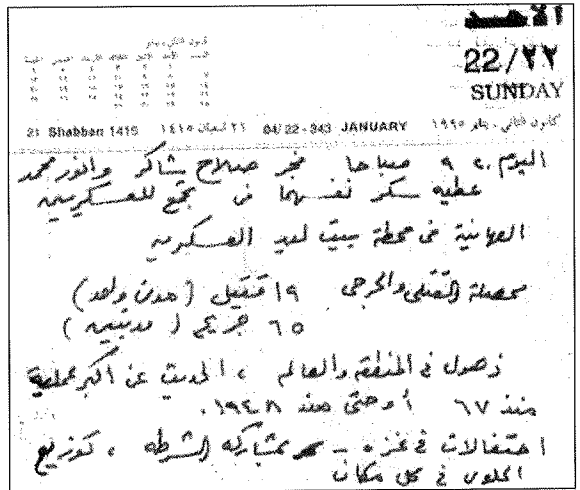 الأحد
22/٢٢
SUNDAY
21 Shabban 1415 ٢١ شعبان ١٤١٥ 04/22-343 JANUARY كانون الثاني - يناير ١٩٩٥
اليوم ٩،٢٠ صباحا فجر صلاح شاكر وانور محمد
عطيه سكر نفسهما في تجمع للعسكريين
الصهاينة في محطة بيت ليد العسكرية
محصلة القتلى والجرحى ١٩ قتيل (مدن واحد)
٦٥ جريح (مدنيين)
ذهول في المنطقة والعالم ، الحديث عن أكبر عملية
منذ ٦٧ أو حتى منذ ١٩٤٨.
احتفالات في غزه - بمشاركه الشرطه ، توزيع
الحلوى في كل مكان